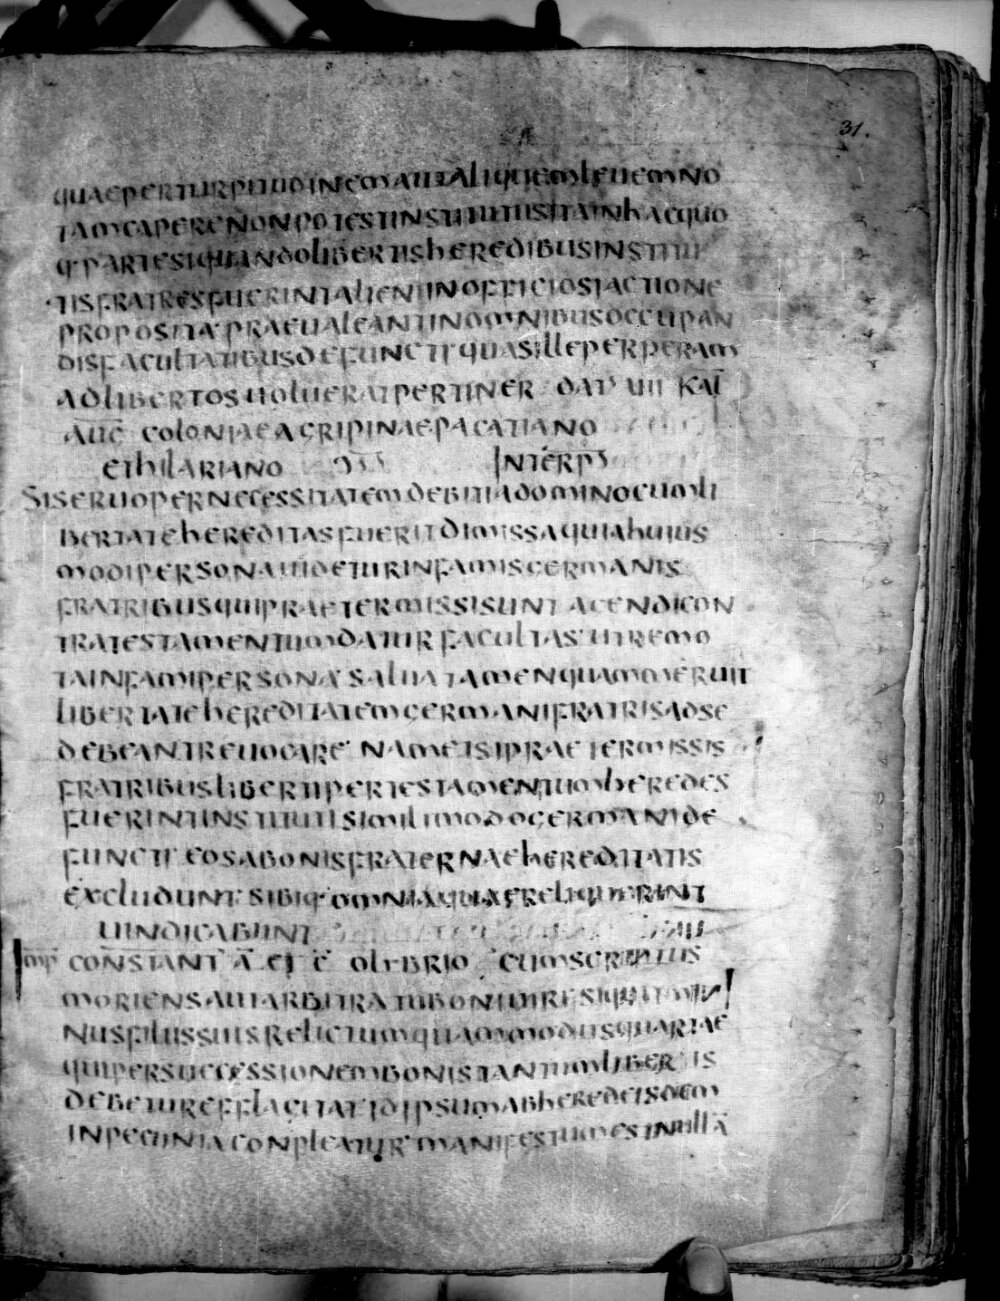 31.
quaeperturpitudinemautaliquemleuemno
tamcaperenonpotestinstitutusitainhacquo
q·partesiquandolibertisheredibusinstitu
tisfratresfuerintalieniinofficiosiactione
propositapraeualeantinomnibusoccupan
disfacultatibusdefunctiquasilleperperam
adlibertosuolueratpertiner dat' uiii kal̄
auḡ coloniaeacripinaepacatiano
ethilariano interp̄
Siseruopernecessitatemdebitiadominocumli
bertatehereditasfueritdimissaquiahuius
modipersonauideturinfamisgermanis
fratribusquipraetermissisuntagendicon
tratestamentumdaturfacultas utremo
tainfamipersona saluatamenquammeruit
libertatehereditatemgermanifratrisadse
debeantreuocare nametsipraetermissis
fratribuslibertipertestamentumheredes
fuerintinstitutisimilimodogermanide
functi eosabonisfraternaehereditatis
excludunt sibiq·omniaquaereliquerint
uindicabunt
imp̄ constant̄ ā et c̄ olybrio cumscribtus
moriensautarbitratuboniuiresiquidmi
nusfiliussuisrelictumquammodusquartae
quipersuccessionembonistantumliberis
debeturefflagitatidipsumabheredeisdem
inpecuniaconpleatur manifestumestnullā